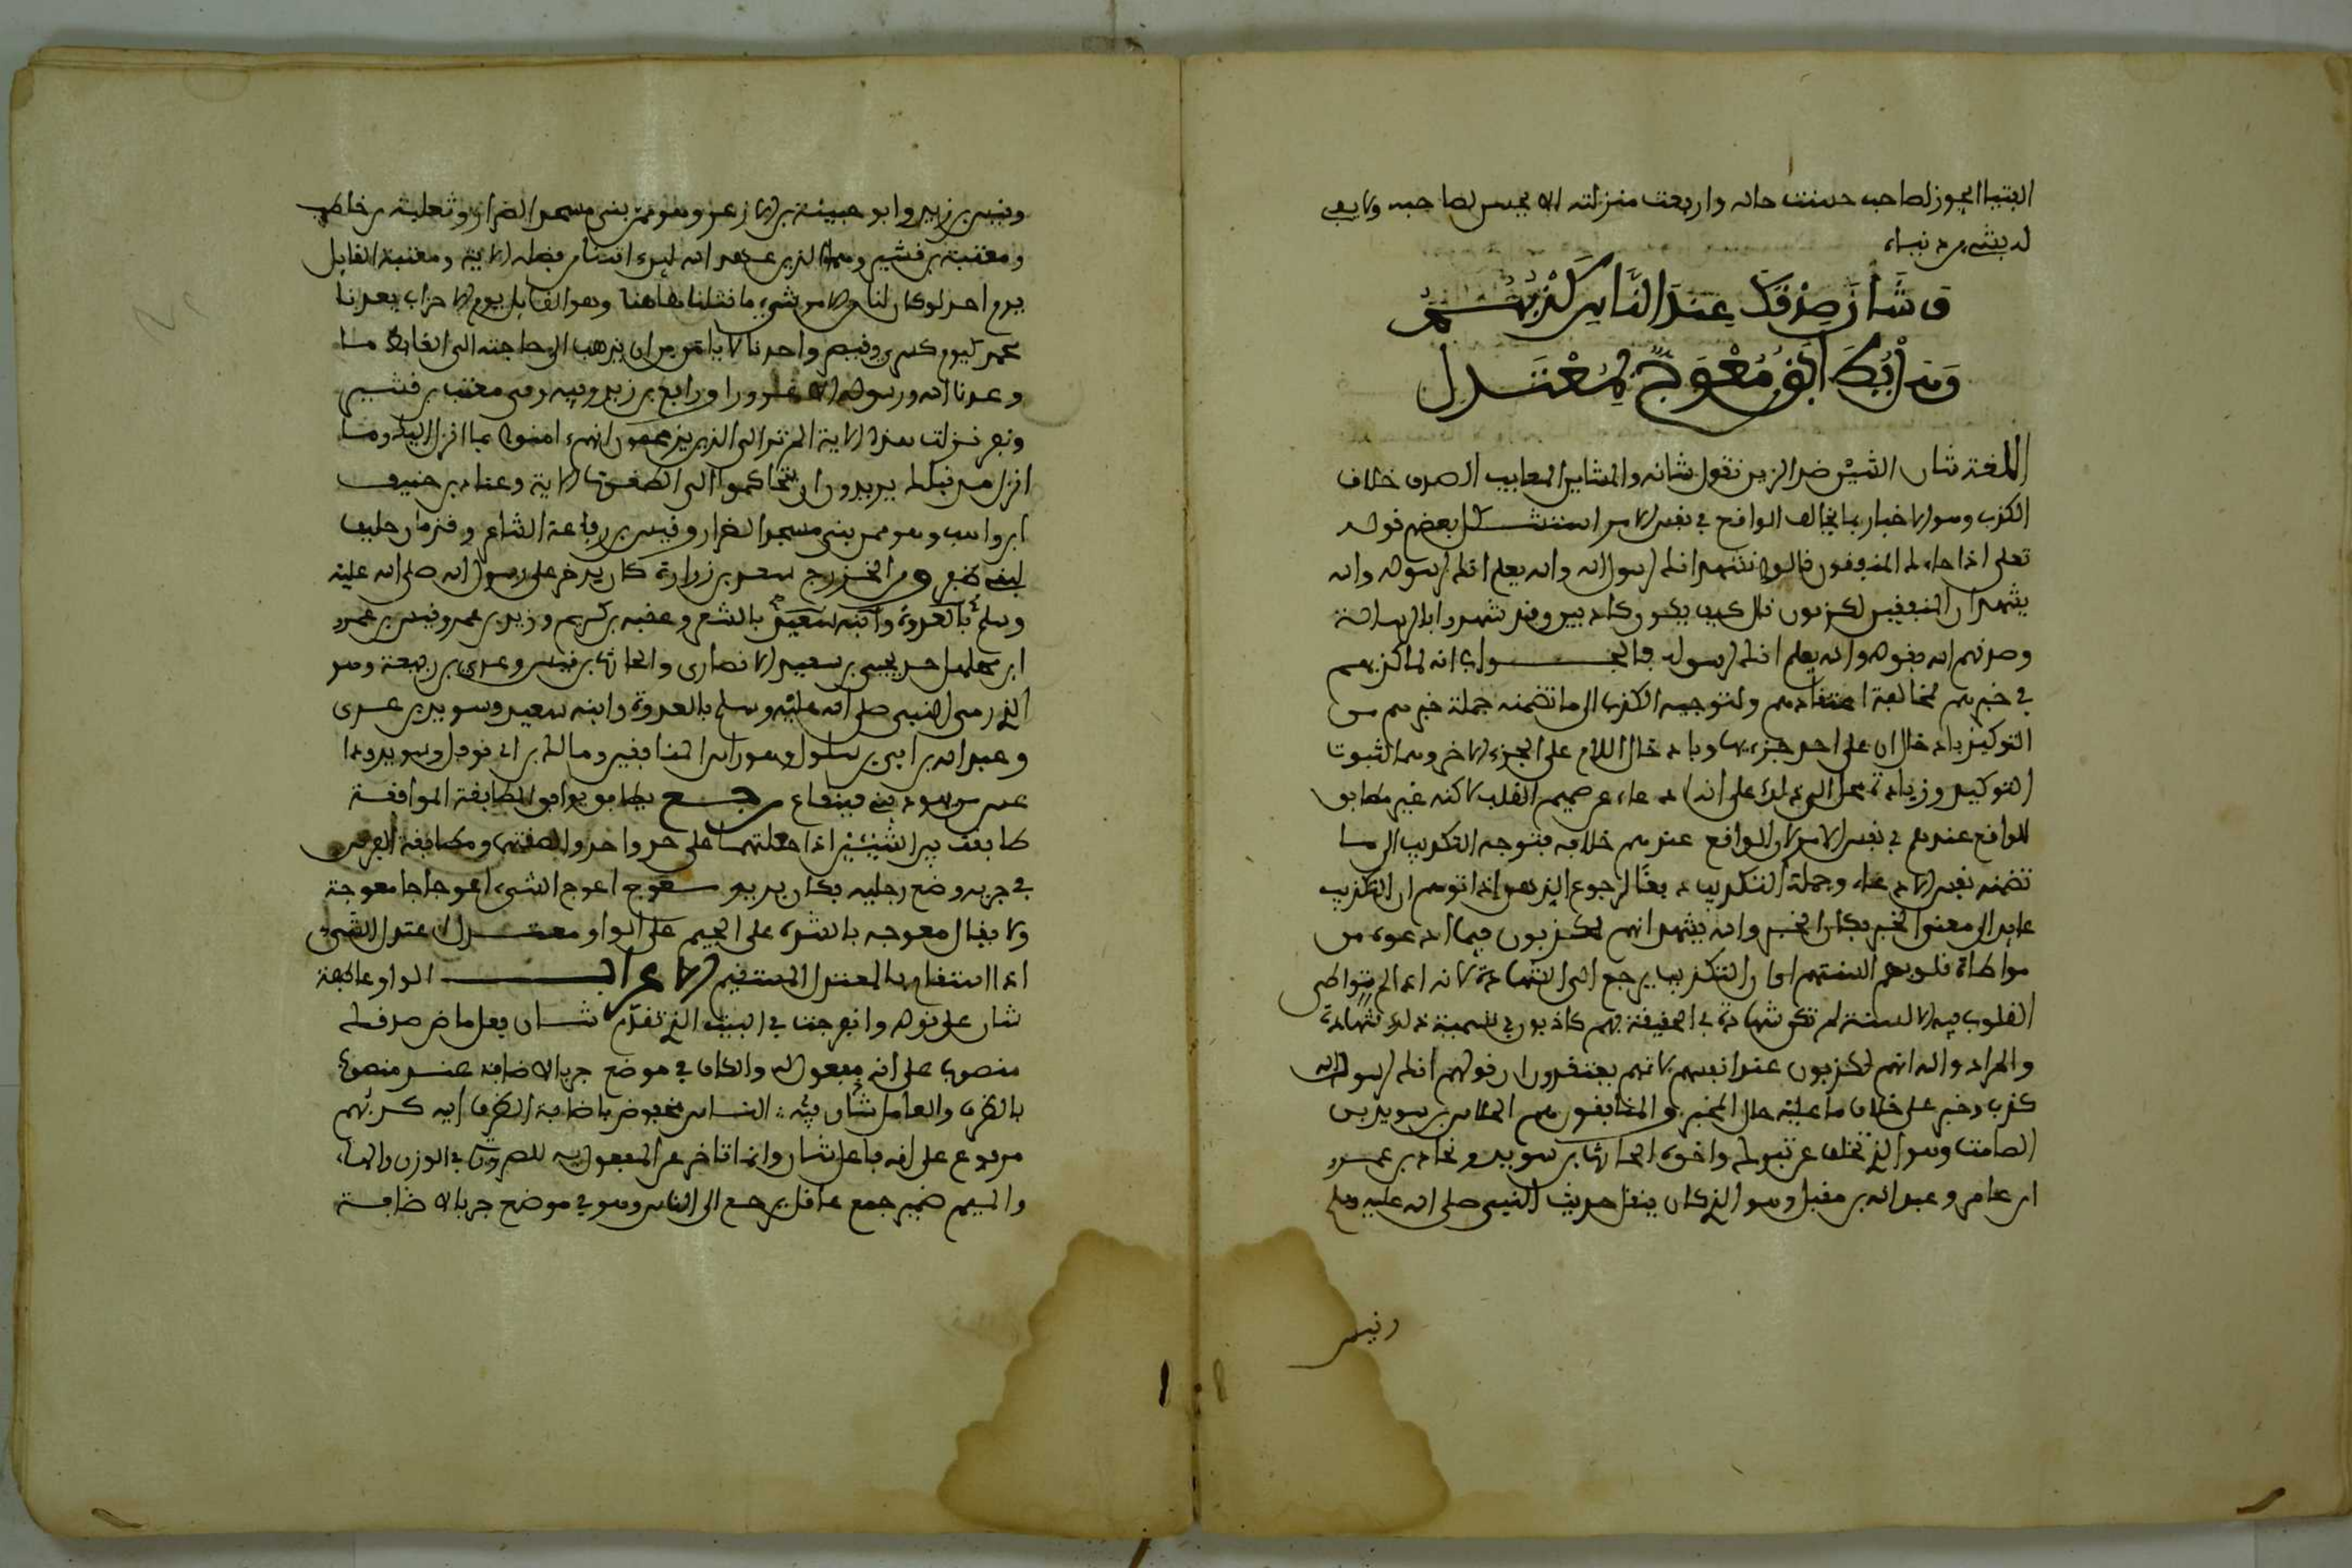 الفتيا الجوز لصاحب حسنت حاله وارتفعت منزلته لا يحسن لصاحبه ولا يفي
له بشيء من دنياه
وَشَانَ صِدْقَكَ عِندَ النَّاسِ كَذِبُهُمْ
وَهَلْ يُطَابَقُ مُعْوَجٌّ بِمُعْتَدِلِ
اللغة شان الشين ضد الزين تقول شانه والمشاين المعايب الصدق خلاف
الكذب وهو الاخبار بما يخالف الواقع في نفس الامر استشكل بعضهم قوله
تعلى اذا جاءك المنفقون قالوا نشهد انك لرسول الله والله يعلم انك لرسوله والله
يشهد ان المنفقين لكذبون قال كيف يكونوا كاذبين وقد شهدوا بالرسالة
وصدقهم الله بقوله والله يعلم انك لرسوله فالجواب انه لما كذبهم
في خبرهم لمخالفة اعتقادهم ولتوجيه الكذب الى ما تضمنه جملة خبرهم من
التوكيد بادخال ان على احد جزءيها وبادخال اللام على الجزء الاخر وهما لثبوت
التوكيد وزيادته محل الى ذلك على انه ادعاء عن صميم القلب لاكنه غير مطابق
للواقع عندهم في نفس الامر لان الواقع عندهم خلافه فتوجه التكذيب الى ما
تضمنه نفس الادعاء وجملة التكذيب دفعا لرجوع الذهن اذا توهم ان التكذيب
عايد الى معنى الخبر فكان الخبر والله يشهد انهم لكذبون فيما ادعوه من
مواطاة قلوبهم السنتهم او ان التكذيب يرجع الى الشهادة لانه اذا لم تتواطى
القلوب فيه الالسنة لم تكن شهادة في الحقيقة فهم كاذبون في تسمية ذلك شهادة
والمراد والله انهم لكذبون عند انفسهم لانهم يعتقدون ان قولهم انك لرسول الله
كذب وخبر على خلاف ما عليه حال المخبر والمنافقون هم الجلاس بن سويد بن
الصامت وهو الذي تخلف عن تبوك واخوه الحارث بن سويد ونجاد بن عمرو
ابن عامر وعبد الله بن مقبل وهو الذي كان ينقل حديث النبي صلى الله عليه وسلم
وقيس
وقيس بن زيد وابو حبيبة بن الازعر وهو ممن بنى مسجد الضرار وثعلبة بن حاطب
ومعتب بن قشير وهما الذين عاهد الله لين اتانا من فضله الاية ومعتب القايل
يوم احد لو كان لنا من الامر شيء ما قتلنا هاهنا وهو القايل يوم الاحزاب يعدنا
محمد كنوز كسرى وقيصر واحدنا لا يامن من ان يذهب الى حاجته الى الغايط ما
وعدنا الله ورسوله الا غرورا ورافع بن زيد وفيه وفي معتب بن قشير
ونفر نزلت هذه الاية الم تر الى الذين يزعمون انهم امنوا بما انزل اليك وما
انزل من قبلك يريدون ان يتحاكموا الى الطغوت الاية وعباد بن حنيف
ابن واهب وهو ممن بنى مسجد الضرار وقيس بن رفاعة الشاعر وقزمان حليف
لبني ظفر ومن الخزرج سعد بن زرارة كان يدخن على رسول الله صلى الله عليه
وسلم بالعدوة وابنه سعيد بالشعر وعقبه بن كريم وزيد بن عمرو وقيس بن عمرو
ابن سهل جد يحيى بن سعيد الانصارى والحارث بن قيس وعدي بن ربيعة وهو
الذي رمى النبي صلى الله عليه وسلم بالعدوة وابنه سعيد وسويد بن عدى
وعبد الله بن ابي بن سلول وهو راس المنافقين ومالك بن ابي نوفل وسويد وداعس
من يهود بني قينقاع رجع يطابق يوافق المطابقة الموافقة
طابقت بين الشيئين اذا جعلتهما على حد واحد والصقتهما ومطابقة الفرس
في جريه وضع رجليه مكان يديه معوج اعوج الشيء اعوجاجا معوجة
ولا يقال معوجه بالشدة على الجيم على الواو معتدل اعتدل الشيء
اذا استقام والمعتدل المستقيم الاعراب الواو عاطفة
شان على قوله وانفرجت في البيت الذي تقدم شان فعل ماض صدقك
منصوب على انه مفعول به والكاف في موضع جر بالاضافة عند منصوب
بالظرف والعامل شان فيه الناس مخفوض باضافة الظرف اليه كذبهم
مرفوع على انه فاعل شان وانما تاخر عن المفعول به للضرورة في الوزن والهاء
والميم ضمير جمع عاقل يرجع الى الناس وهو في موضع جر بالاضافة